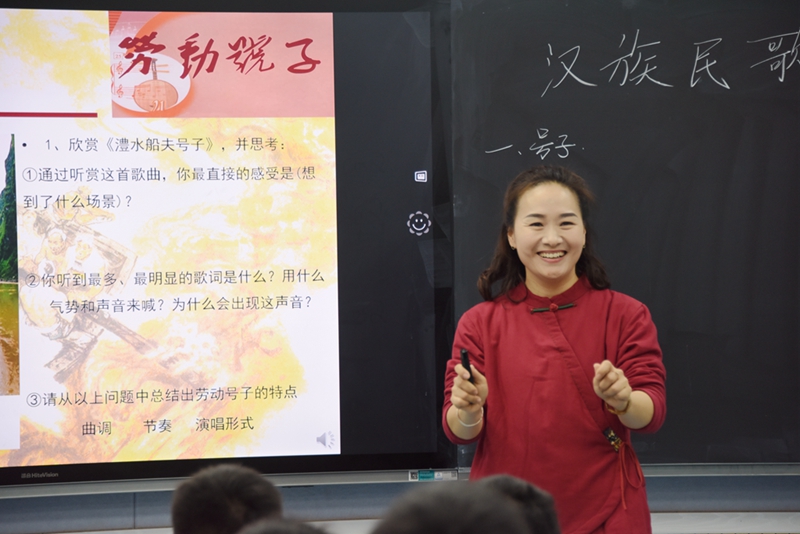 勞動號子
• 1、欣赏《澧水船夫号子》，并思考：
①通过听赏这首歌曲，你最直接的感受是(想
到了什么场景)？
②你听到最多、最明显的歌词是什么？用什么
气势和声音来喊？为什么会出现这声音？
③请从以上问题中总结出劳动号子的特点
曲调 节奏 演唱形式
汉族民歌
一、号子.